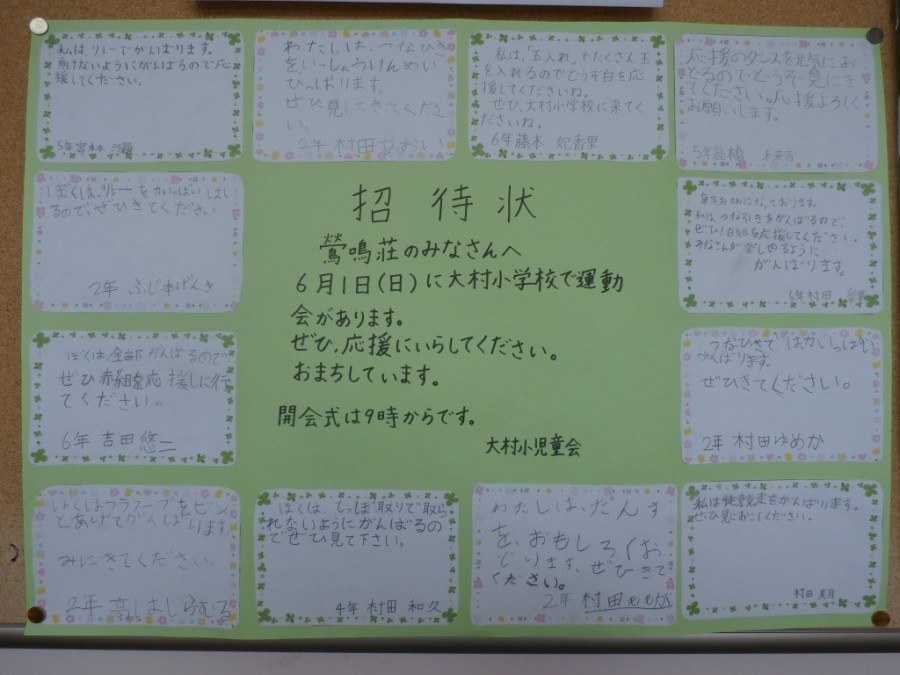 私はリレーでがんばります。
負けないようにがんばるので応
援してください。
5年宮本
わたしは、つなひき
をいっしょうけんめい
ひっぱります。
ぜひ見にきてくださ
い。
2年 村田あおい
私は、「玉入れ」でたくさん玉
を入れるのでどうぞ白を応
援してくださいね。
ぜひ、大村小学校に来てく
ださいね。
6年藤本 妃香里
応援のダンスを元気にお
どるのでどうぞ見にき
てください。応援よろしく
お願いします。
5年
ぼくは、リレーをがいっぱいはし
るので、ぜひきてください
2年 ふじ本げんき
招待状
鶯鳴荘のみなさんへ
6月1日(日)に大村小学校で運動
会があります。
ぜひ、応援にいらしてください。
おまちしています。
開会式は9時からです。
大村小児童会
毎年お世話になっております。
私は、つな引きをがんばるので、
ぜひ!白組を応援してください。
みなさんが楽しめるように
がんばります。
6年村田
ぼくは、全部がんばるので
ぜひ赤組を応援しに行
てください。
6年 吉田悠二
つなひきで ばかいっぱい
がんばります。
ぜひきてください。
2年 村田ゆめか
ぼくはフラフープをピン
とあげてがんばります
みにきてください。
2年 高
ぼくは、しっぽ取りで取ら
れないようにがんばるの
でぜひ見て下さい。
4年 村田 和久
わたしは、だんす
を、おもしろくお
どります、ぜひきて
ください。
2年 村田ももか
私は徒競走をがんばります。
ぜひ見におこしください。
村田